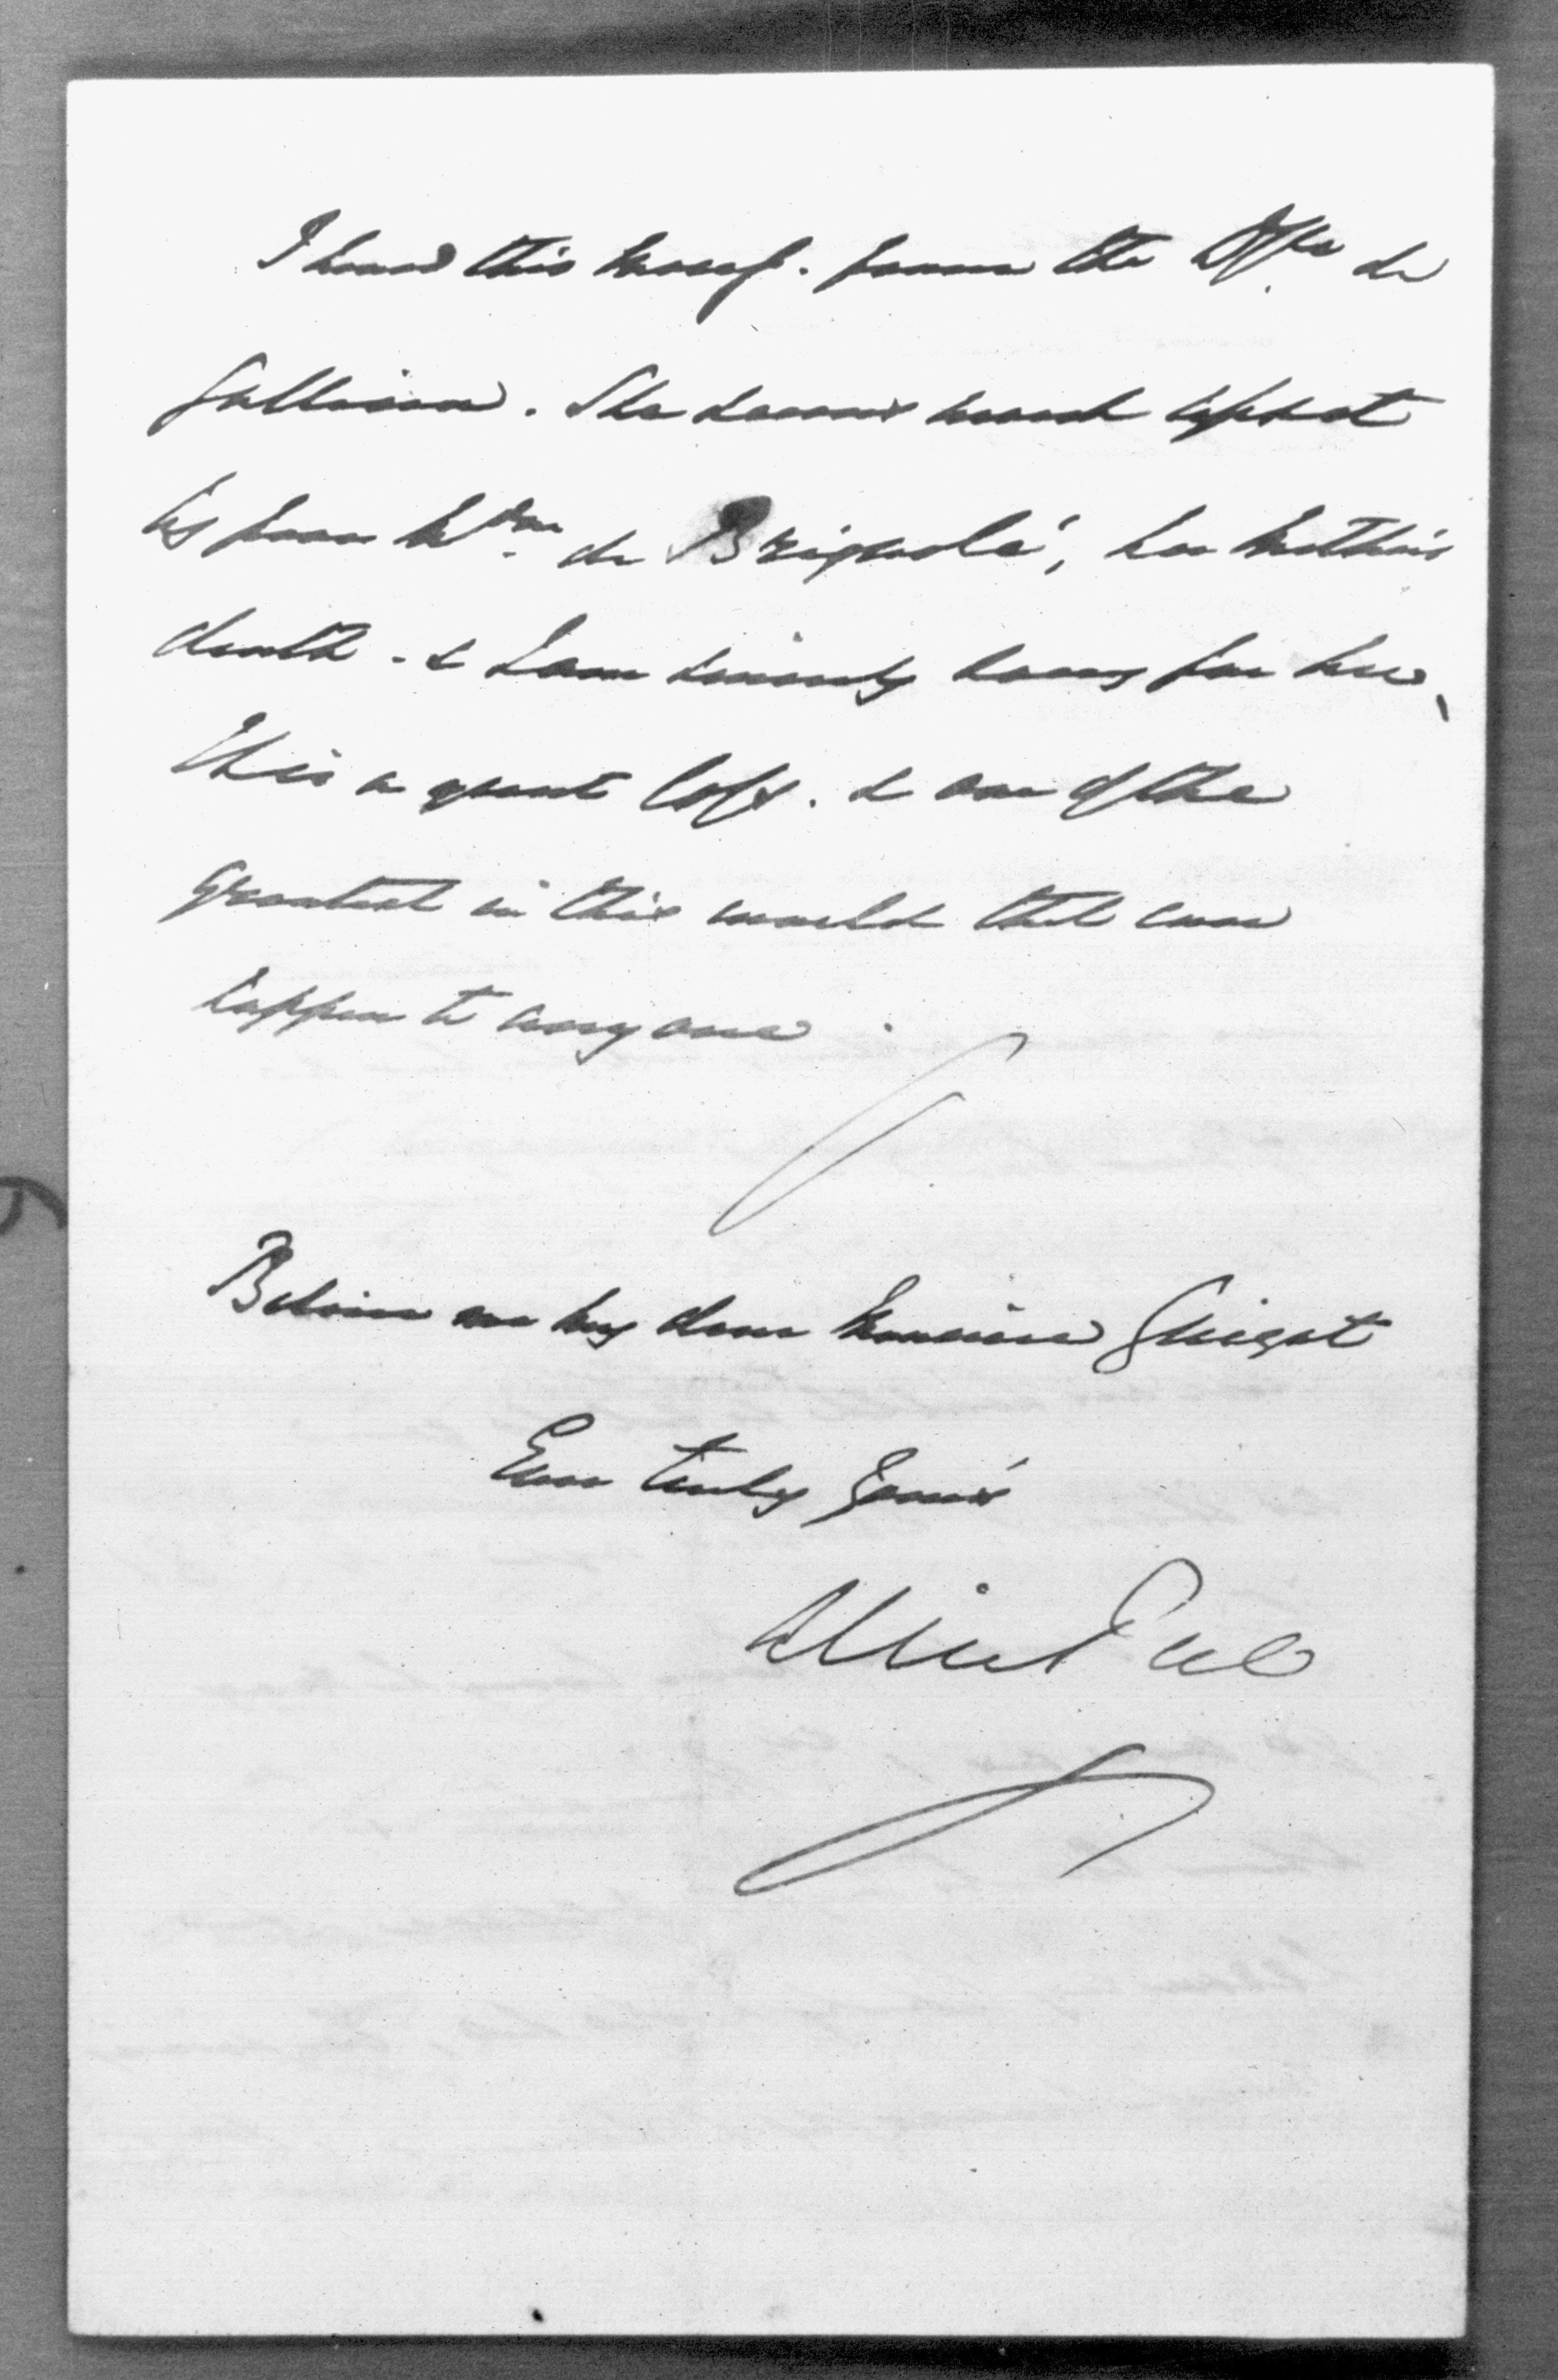 I heard this morng. from the Dsse de
Galliera. She seems much upset
by poor Mdme de Brignole', her mother's
death - & I am sincerely sorry for her,
It is a great loss. & one of the
greatest in this world that can
happen to any one.
Believe me my dear Monsieur Guizot
Ever truly Yours